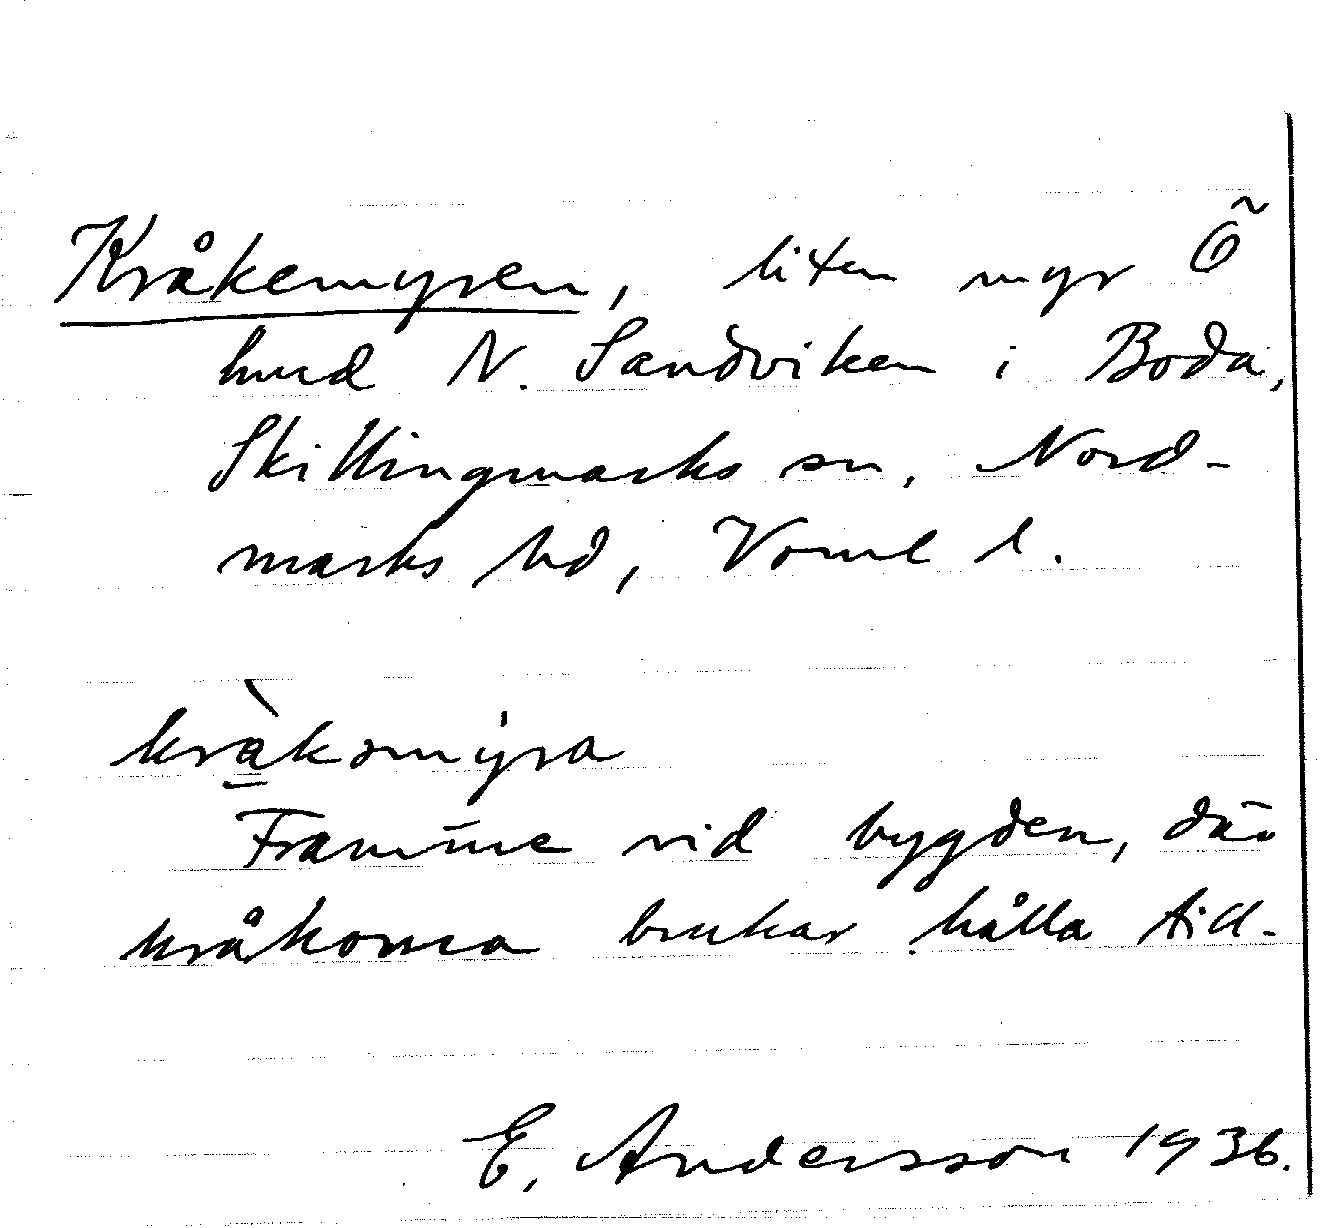 Kråkemyren, liten myr Õ
hmd N. Sandviken i Boda,
Skillingmarks sn, Nord-
marks hd, Vrml l.
kràkomýra
Framme vid bygden, där
kråkorna brukar hålla till.
E. Andersson 1936.